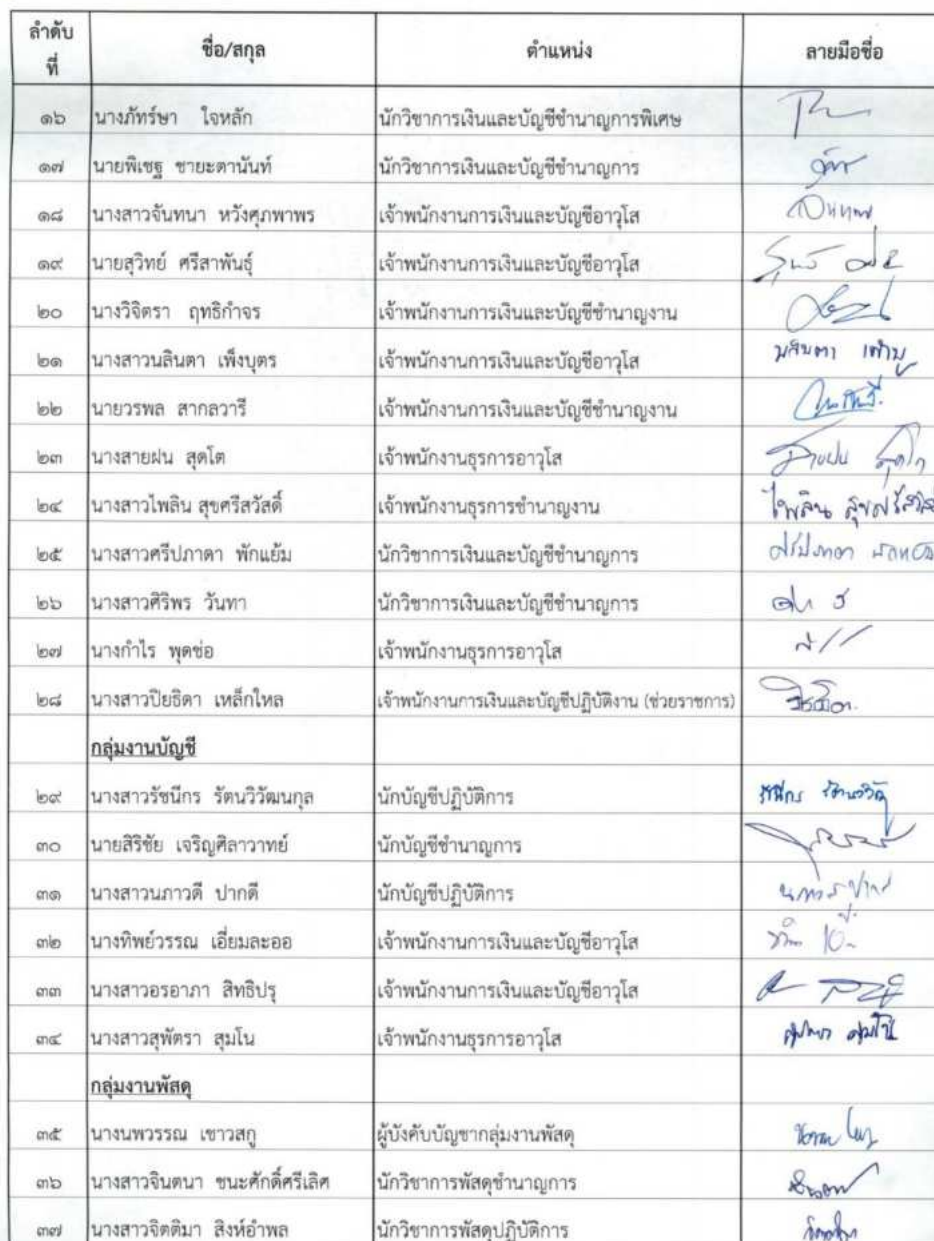 ลำดับที่ ชื่อ/สกุล ตำแหน่ง ลายมือชื่อ
๑๖ นางภัทร์ษา ใจหลัก นักวิชาการเงินและบัญชีชำนาญการพิเศษ
๑๗ นายพิเชฐ ชายะตานันท์ นักวิชาการเงินและบัญชีชำนาญการ
๑๘ นางสาวจันทนา หวังศุภพาพร เจ้าพนักงานการเงินและบัญชีอาวุโส
๑๙ นายสุวิทย์ ศรีสาพันธุ์ เจ้าพนักงานการเงินและบัญชีอาวุโส
๒๐ นางวิจิตรา ฤทธิกำจร เจ้าพนักงานการเงินและบัญชีชำนาญงาน
๒๑ นางสาวนลินตา เพ็งบุตร เจ้าพนักงานการเงินและบัญชีอาวุโส
๒๒ นายวรพล สากลวารี เจ้าพนักงานการเงินและบัญชีชำนาญงาน
๒๓ นางสายฝน สุดโต เจ้าพนักงานธุรการอาวุโส สายฝน สุดโต
๒๔ นางสาวไพลิน สุขศรีสวัสดิ์ เจ้าพนักงานธุรการชำนาญงาน ไพลิน สุขศรีสวัสดิ์
๒๕ นางสาวศรีปภาดา พักแย้ม นักวิชาการเงินและบัญชีชำนาญการ
๒๖ นางสาวศิริพร วันทา นักวิชาการเงินและบัญชีชำนาญการ
๒๗ นางกำไร พุดช่อ เจ้าพนักงานธุรการอาวุโส
๒๘ นางสาวปิยธิดา เหล็กไหล เจ้าพนักงานการเงินและบัญชีปฏิบัติงาน (ช่วยราชการ)
กลุ่มงานบัญชี
๒๙ นางสาวรัชนีกร รัตนวิวัฒนกุล นักบัญชีปฏิบัติการ
๓๐ นายสิริชัย เจริญศิลาวาทย์ นักบัญชีชำนาญการ
๓๑ นางสาวนภาวดี ปากดี นักบัญชีปฏิบัติการ
๓๒ นางทิพย์วรรณ เอี่ยมละออ เจ้าพนักงานการเงินและบัญชีอาวุโส
๓๓ นางสาวอรอาภา สิทธิปรุ เจ้าพนักงานการเงินและบัญชีอาวุโส
๓๔ นางสาวสุพัตรา สุมโน เจ้าพนักงานธุรการอาวุโส
กลุ่มงานพัสดุ
๓๕ นางนพวรรณ เชาวสกู ผู้บังคับบัญชากลุ่มงานพัสดุ
๓๖ นางสาวจินตนา ชนะศักดิ์ศรีเลิศ นักวิชาการพัสดุชำนาญการ
๓๗ นางสาวจิตติมา สิงห์อำพล นักวิชาการพัสดุปฏิบัติการ